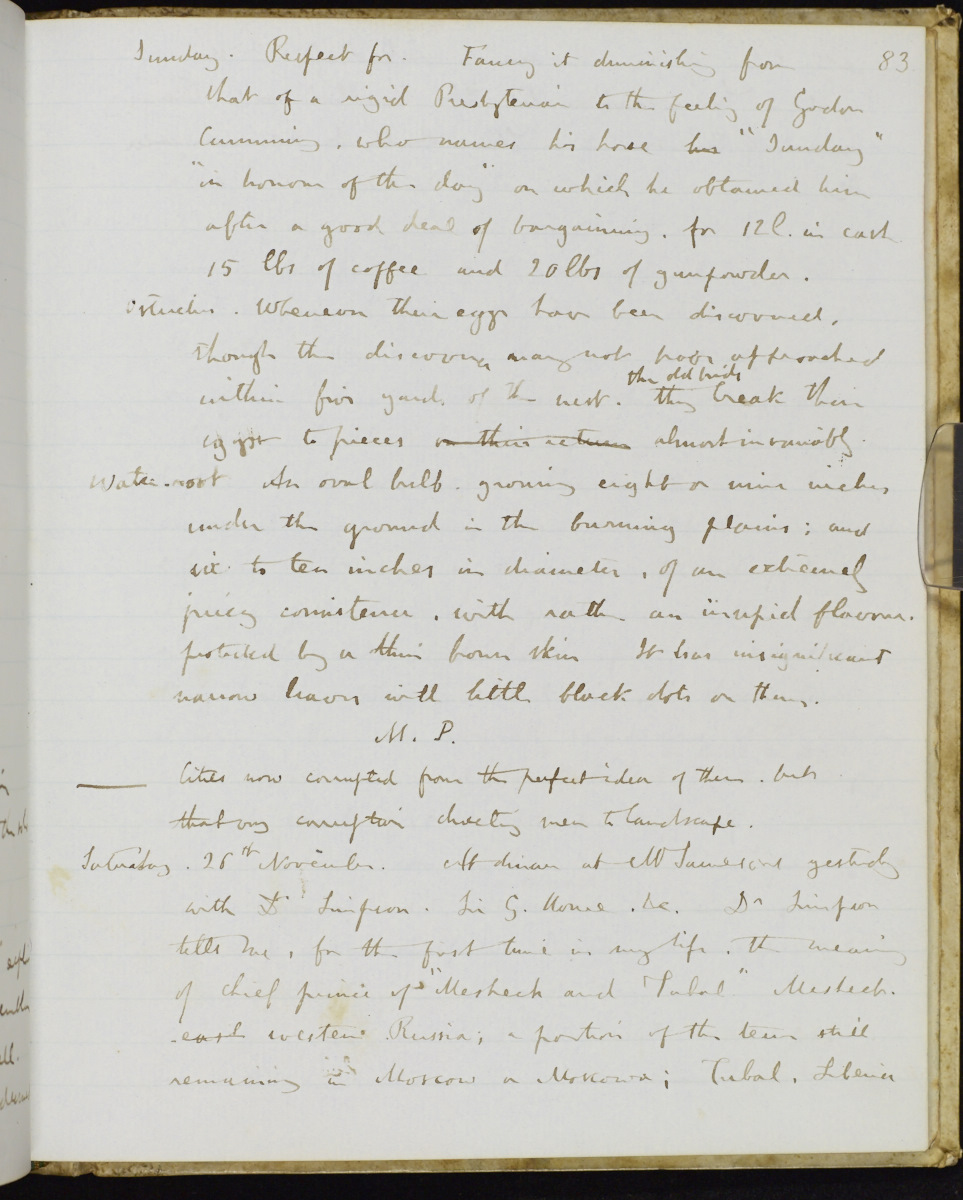 83
Sunday. Respect for. Fancy it diminishing from
that of a rigid Presbyterian to the feeling of Gordon
Cumming, who names his horse his "Sunday"
"in honour of the day" on which he obtained him
after a good deal of bargaining. for 12l. in cash
15 lbs of coffee and 20lbs of gunpowder.
Ostriches. Whenever their eggs have been discovered,
though the discoverer may not have approached
within five yards of the nest. the old birds
they break their
eggs to pieces on their return almost invariably.
Water-root An oval bulb. growing eight or nine inches
under the ground in the burning plains; and
six to ten inches in diameter, of an extremely
juicy consistence, with rather an insipid flavour.
protected by a thin brown skin It has insignificant
narrow leaves with little black dots on them.
M. P.
Cities now corrupted from the perfect idea of them. but
that very corruption directing men to landscape.
Saturday. 26th November. At dinner at Mr Jameson's yesterday
with Dr Simpson. Sir G. Home. &c. Dr Simpson
tells me, for the first time in my life, the meaning
of chief prince of "Meshech and Tubal" Meshech.
east western Russia; a portion of the term still
remaining in Moscow or Moskowa; Tubal, Siberia